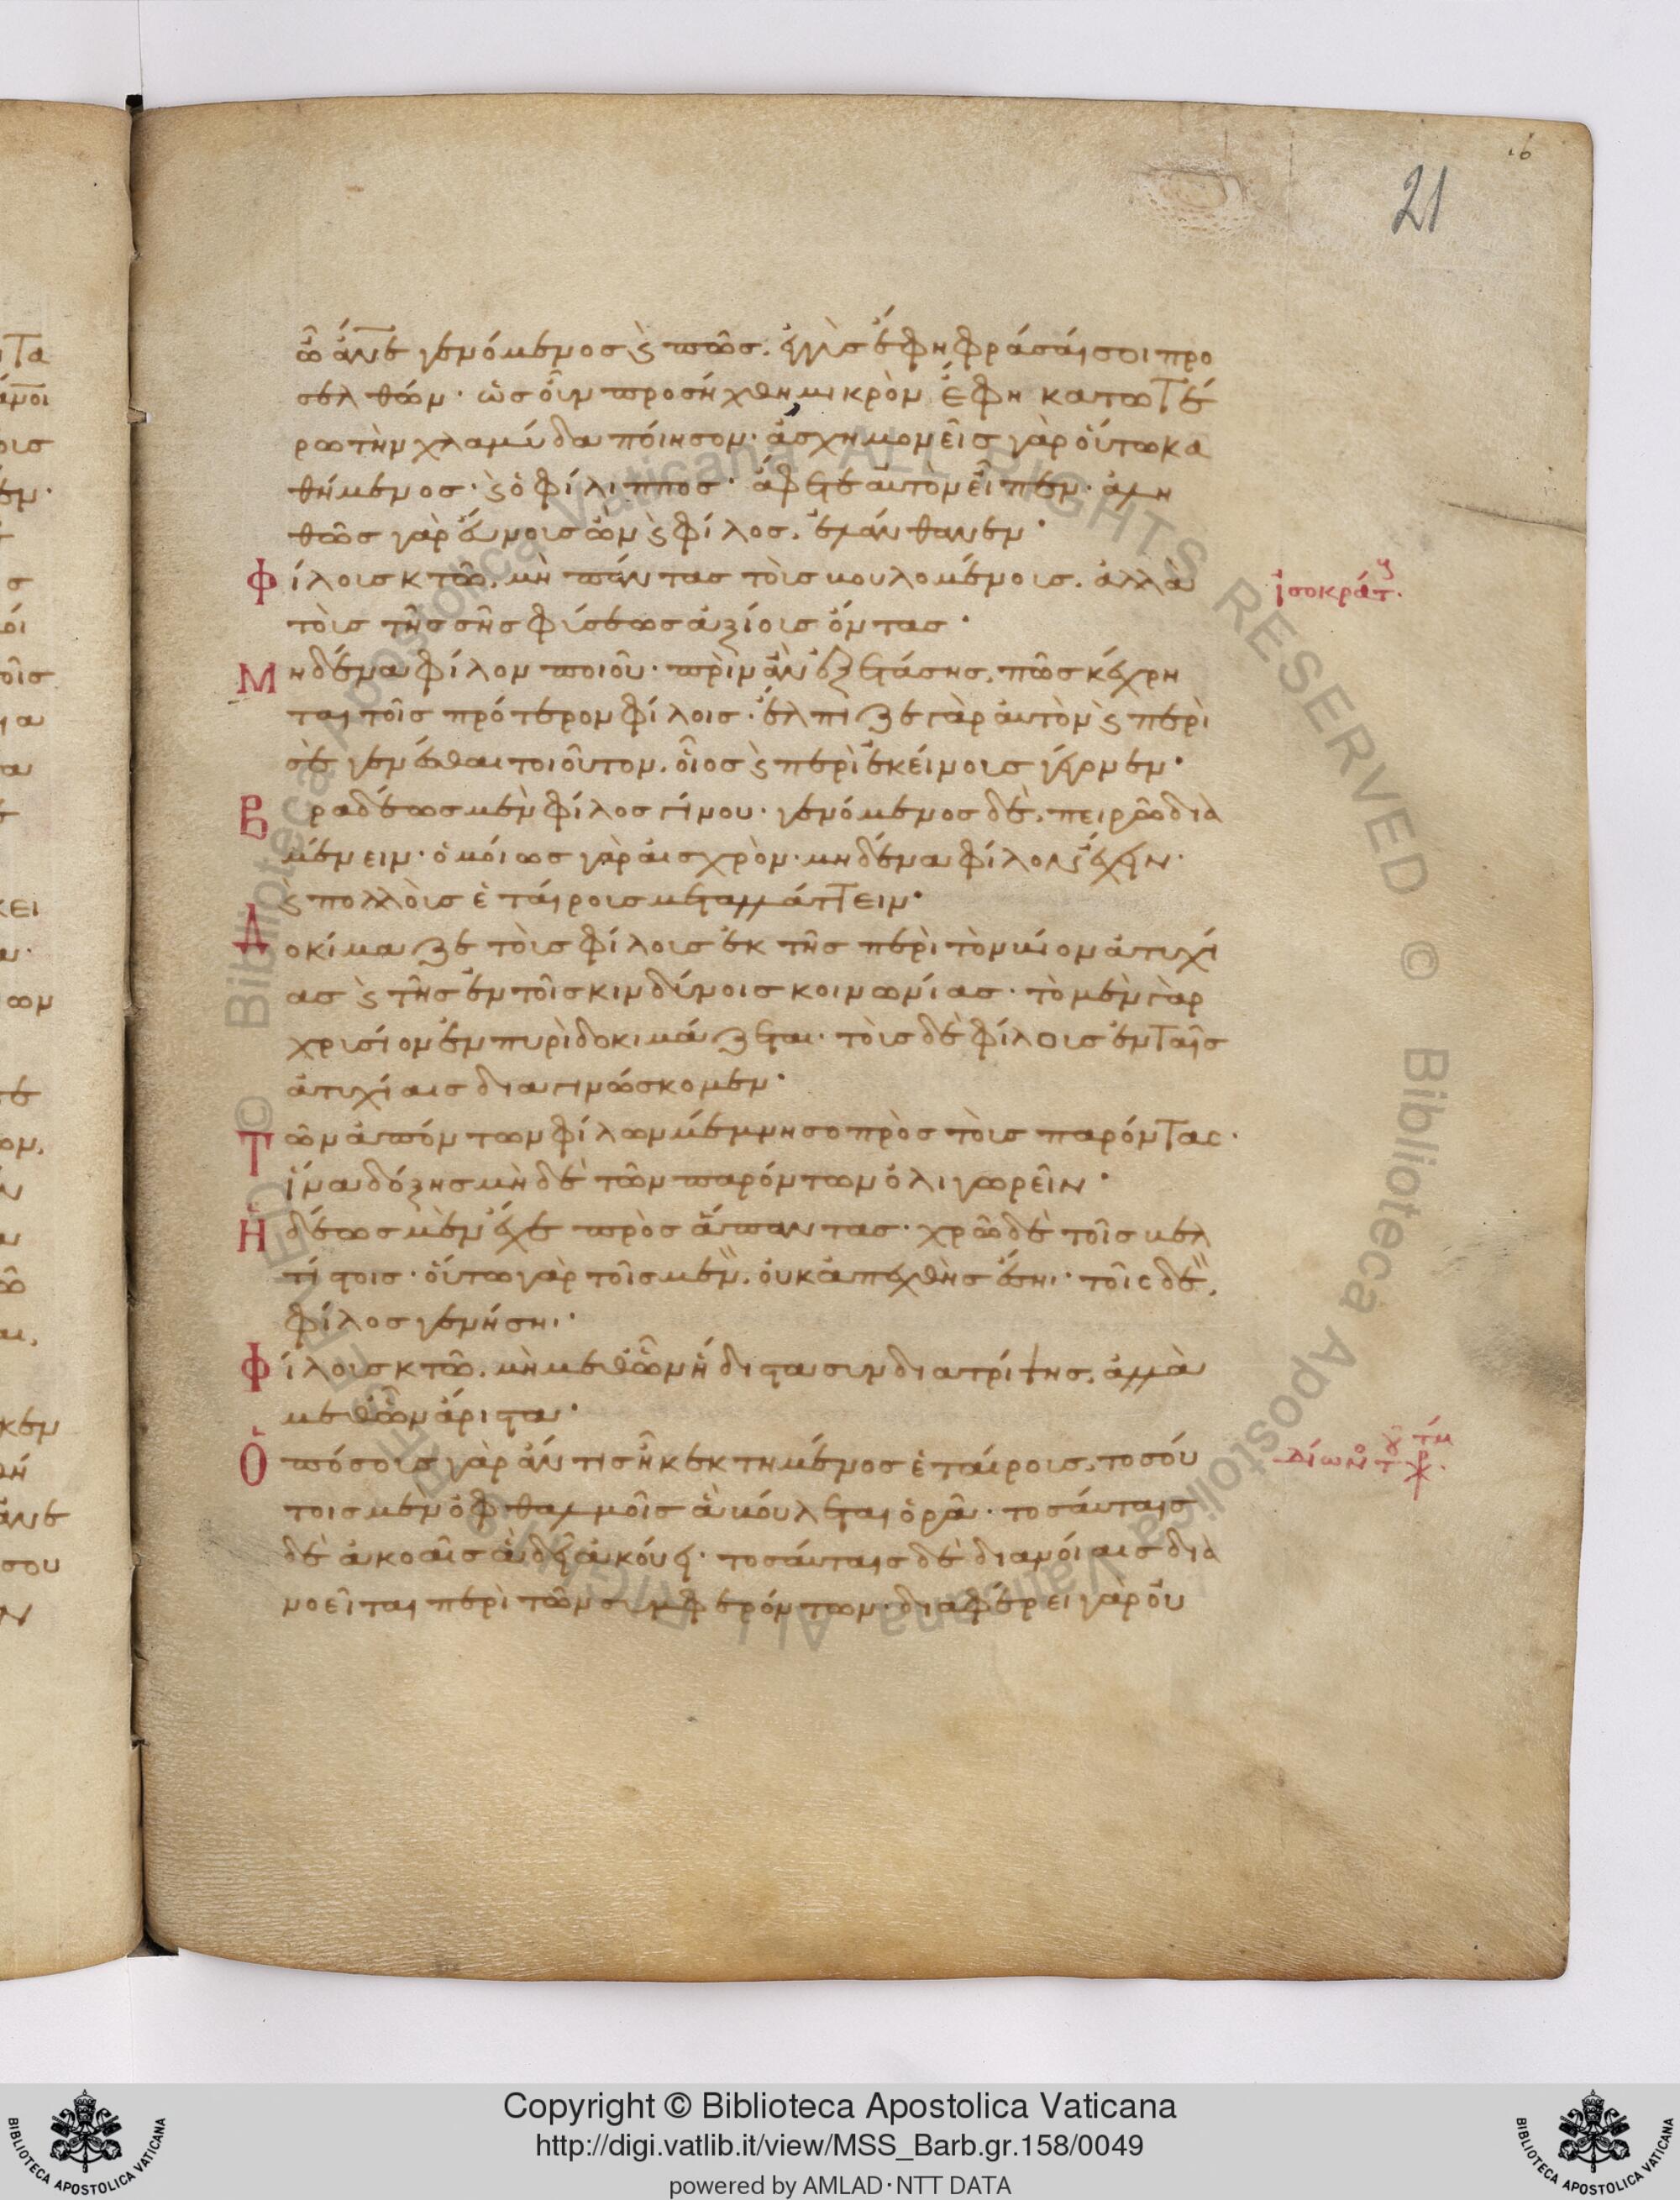 16
21
ὦ ἄνε γενόμενος ϛ πῶς. ἐγγὺς ἔφη φράσαι σοι προ
σελθών· ὡς οὖν προσήχθη μικρὸν ἔφη κατωτέ
ρω τὴν χλαμύδα ποίησον· ἀσχημονεῖς γὰρ οὕτω κα
θήμενος· ϛ ὁ φίλιππος· ἄφετε αὐτὸν εἶπεν· ἀλη
θῶς γὰρ εὔνους ὢν ϛ φίλος. ἐλάνθανεν·
Φίλους κτῶ. μὴ πάντας τοὺς βουλομένους. ἀλλὰ
τοὺς τῆς σῆς φύσεως ἀξίους ὄντας·
ἰσοκράτ.
Μηδένα φίλον ποιοῦ· πρὶν ἂν ἐξετάσῃς, πῶς κέχρη
ται τοῖς πρότερον φίλοις· ἔλπιζε γὰρ αὐτὸν ϛ περὶ
σὲ γενέσθαι τοιοῦτον. οἷος ϛ περὶ ἐκείνους γέγονεν·
Βραδέως μὲν φίλος γίνου· γενόμενος δὲ, πειρῶ δια
μένειν· ὁμοίως γὰρ αἰσχρὸν· μηδένα φίλον ἔχειν·
ϛ πολλοὺς ἑταίρους μεταλλάττειν·
Δοκίμαζε τοὺς φίλους ἐκ τῆς περὶ τὸν βίον ἀτυχί
ας ϛ τῆς ἐν τοῖς κινδύνοις κοινωνίας· τὸ μὲν γὰρ
χρυσίον ἐν πυρὶ δοκιμάζεται· τοὺς δὲ φίλους ἐν ταῖς
ἀτυχίαις διαγινώσκομεν·
Τῶν ἀπόντων φίλων μέμνησο πρὸς τοὺς παρόντας·
ἵνα δόξῃς μὴ δὲ τῶν παρόντων ὀλιγωρεῖν·
Ἡδέως μὲν ἔχε πρὸς ἅπαντας· χρῶ δὲ τοῖς βελ
τίστοις· οὕτω γὰρ τοῖς μὲν. οὐκ ἀπεχθὴς ἔσῃ· τοῖς δὲ,
φίλος γενήσῃ·
Φίλους κτῶ. μὴ μεθ' ὧν ἥδιστα συνδιατρίψῃς, ἀλλὰ
μεθ' ὧν ἄριστα·
Ὁπόσους γὰρ ἄν τις ἦ κεκτημένος ἑταίρους, τοσού
τοις μὲν ὀφθαλμοῖς ἃ βούλεται ὁρᾶ· τοσαύταις
δὲ ἀκοαῖς ἃ δεῖ ἀκούει· τοσαύταις δὲ διανοίαις δια
νοεῖται περὶ τῶν συμφερόντων· διαφέρει γὰρ οὐ
Copyright © Biblioteca Apostolica Vaticana
http://digi.vatlib.it/view/MSS_Barb.gr.158/0049
powered by AMLAD·NTT DATA
BIBLIOTECA APOSTOLICA VATICANA
BIBLIOTECA APOSTOLICA VATICANA